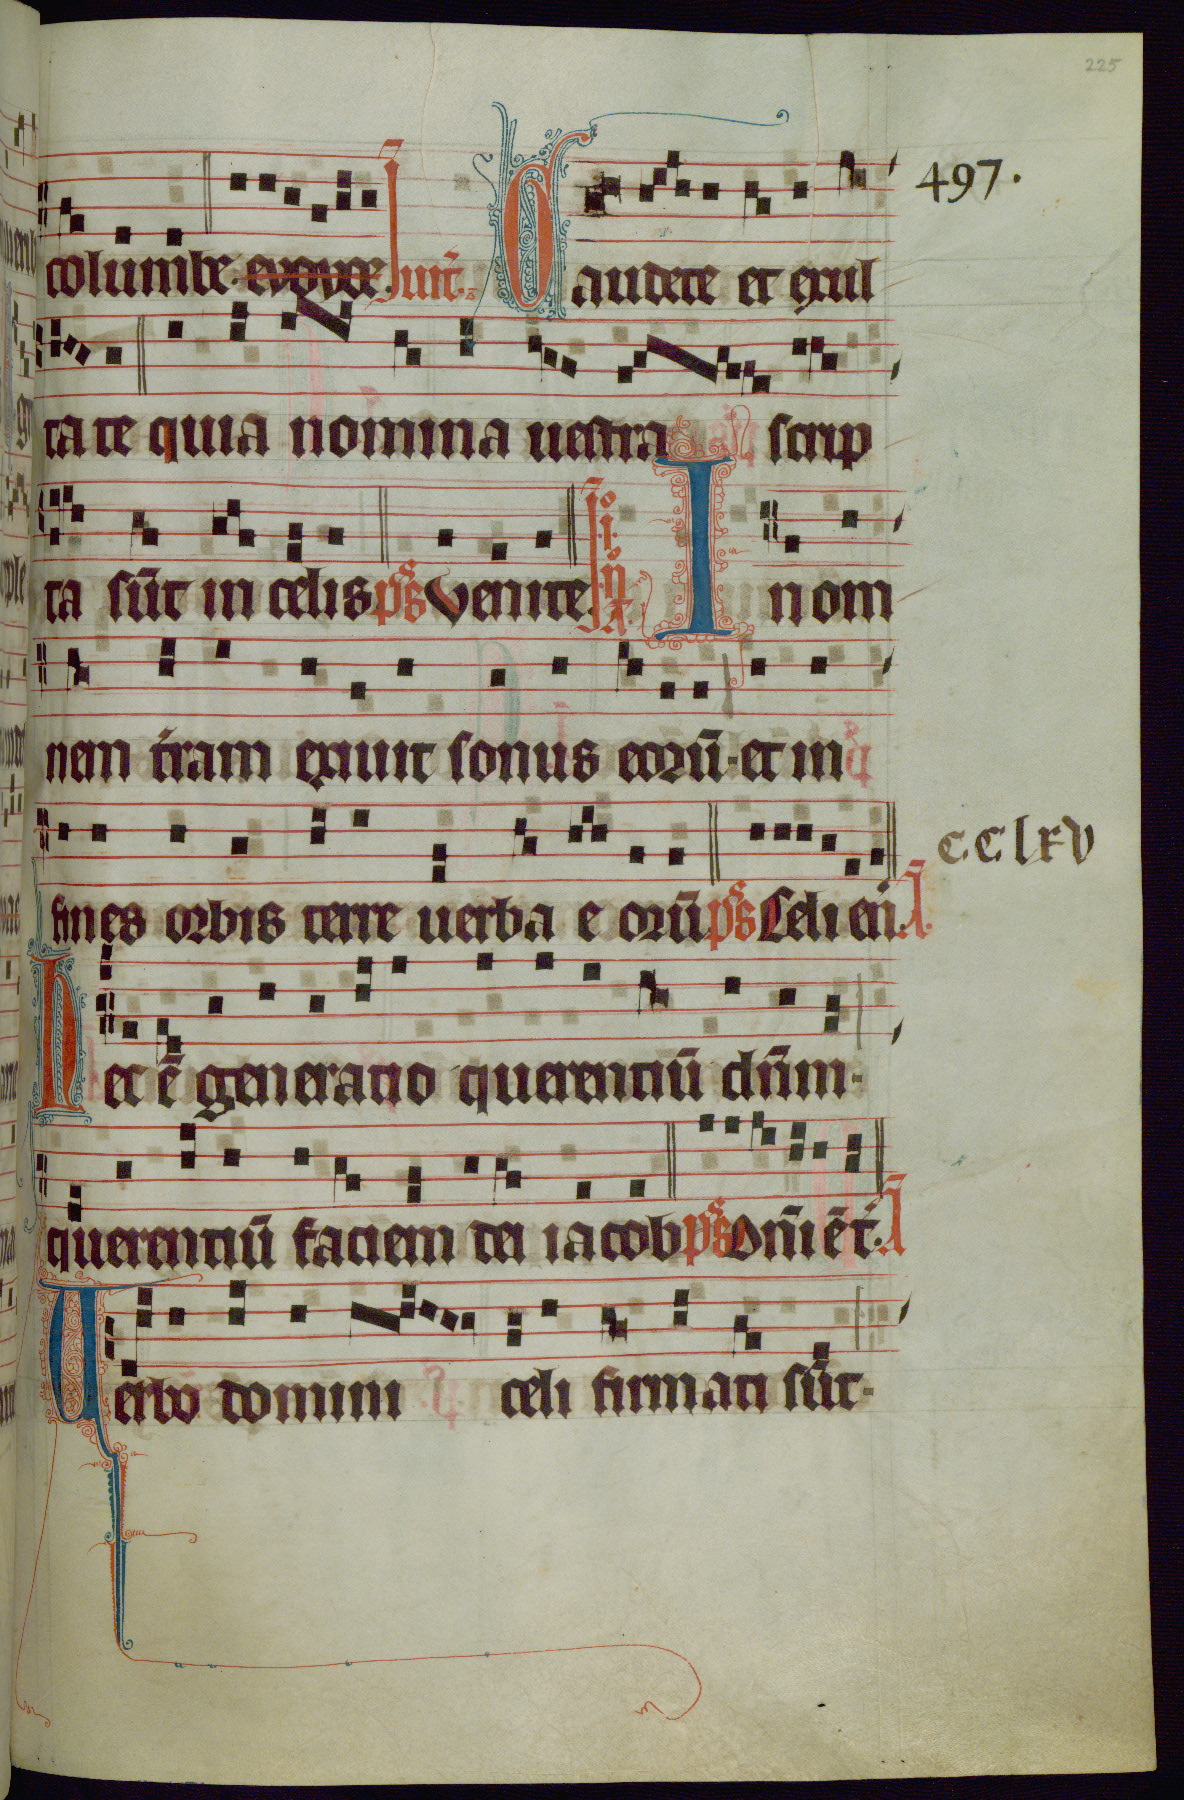 225
497.
columbe. euouae. Inuit. Gaudete et exul
ta te quia nomina uestra scrip
ta sūt in celis ps̄ Venite. I. i. n. A. In om
nem t̄ram exiuit sonus eorū. et in
fines orbis terre uerba e orū ps̄ Celi en̄. A.
cclxv
Hec ē generatio querentiū dn̄m.
querentiū faciem dei iacob ps̄ Dn̄i ē t̄. A
Uerbo domini celi firmati sūt.